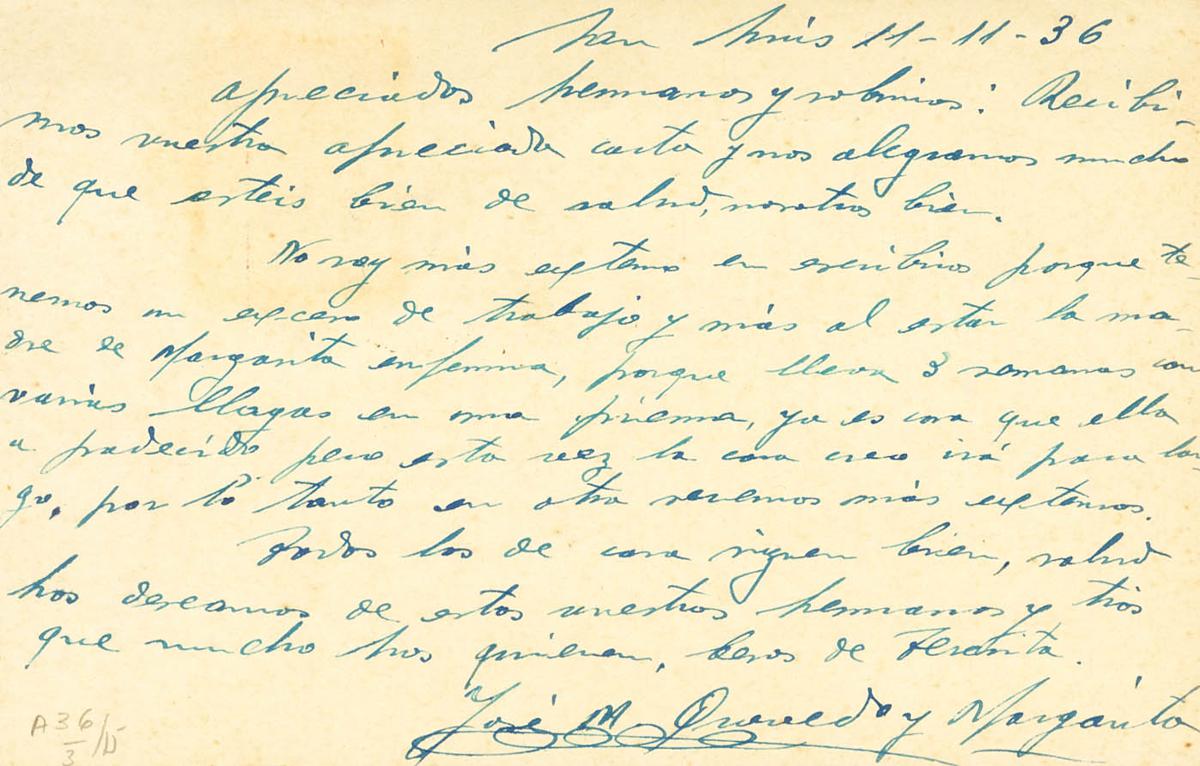 San Luis 11-11-36
apreciados hermanos y sobrinos: Recibi-
mos vuestra apreciada carta y nos alegramos mucho
de que esteis bien de salud, nosotros bien.
No voy más extenso en escribiros porque te-
nemos un exceso de trabajo y más al estar la ma-
dre de Margarita enferma, porque lleva 3 semanas con
varias llagas en una pierna, ya es cosa que ella
a padecido pero esta vez la cosa creo irá para lar-
go, por lo tanto en otra seremos más extensos.
Todos los de casa siguen bien, salud
hos deseamos de estos vuestros hermanos y tios
que mucho hos quieren, besos de Teresita.
José M. Quevedo y Margarita
A 36/
3